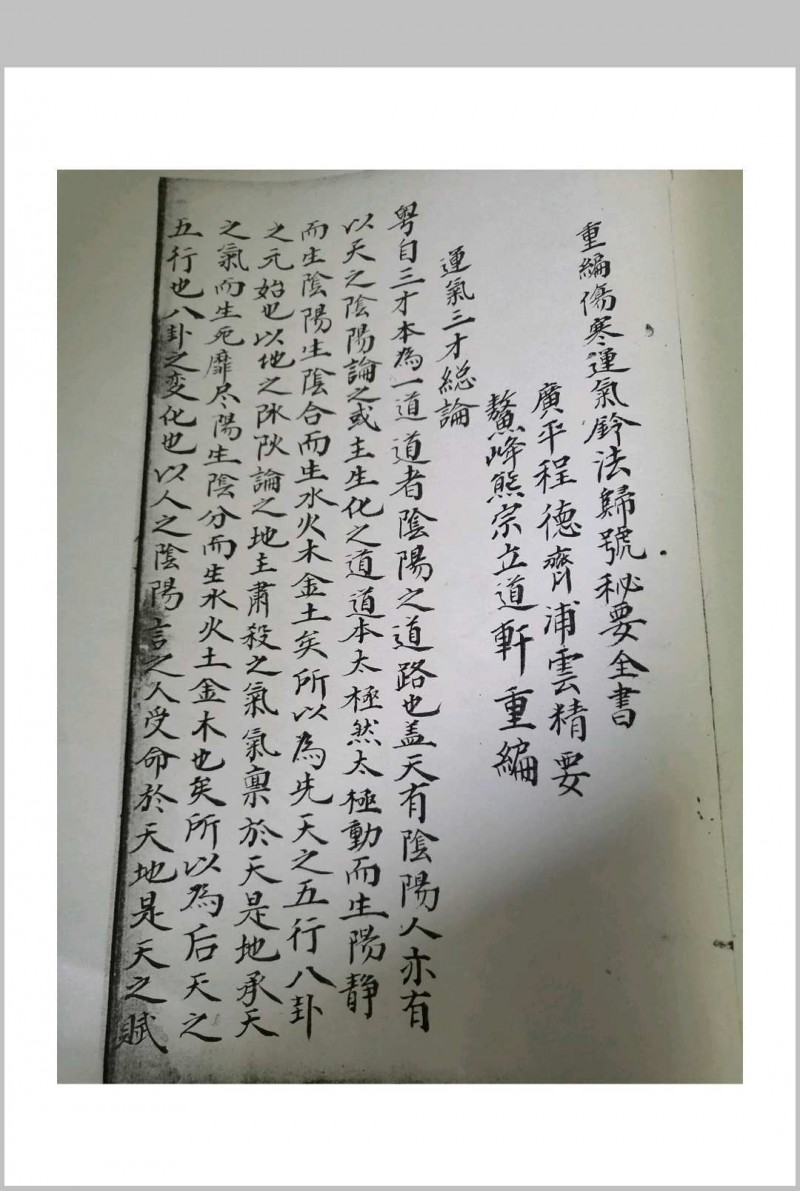 重編傷寒運氣鈐法歸號秘要全書
廣平程德齊浦雲精要
鰲峰熊宗立道軒重編
運氣三才総論
粤自三才本為一道道者陰陽之道路也盖天有陰陽人亦有
以天之陰陽論之或主生化之道道本太極然太極動而生陽靜
而生陰陽生陰合而生水火木金土矣所以為先天之五行八卦
之元始也以地之阥阦論之地主肅殺之氣氣禀於天是地承天
之氣而生死靡尽陽生陰分而生水火土金木也矣所以為后天之
五行也八卦之变化也以人之陰陽言之人受命於天地是天之賦